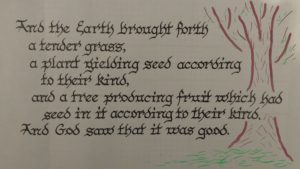 And the Earth brought forth
a tender grass,
a plant yielding seed according
to their kind,
and a tree producing fruit which had
seed in it according to their kind.
And God saw that it was good.